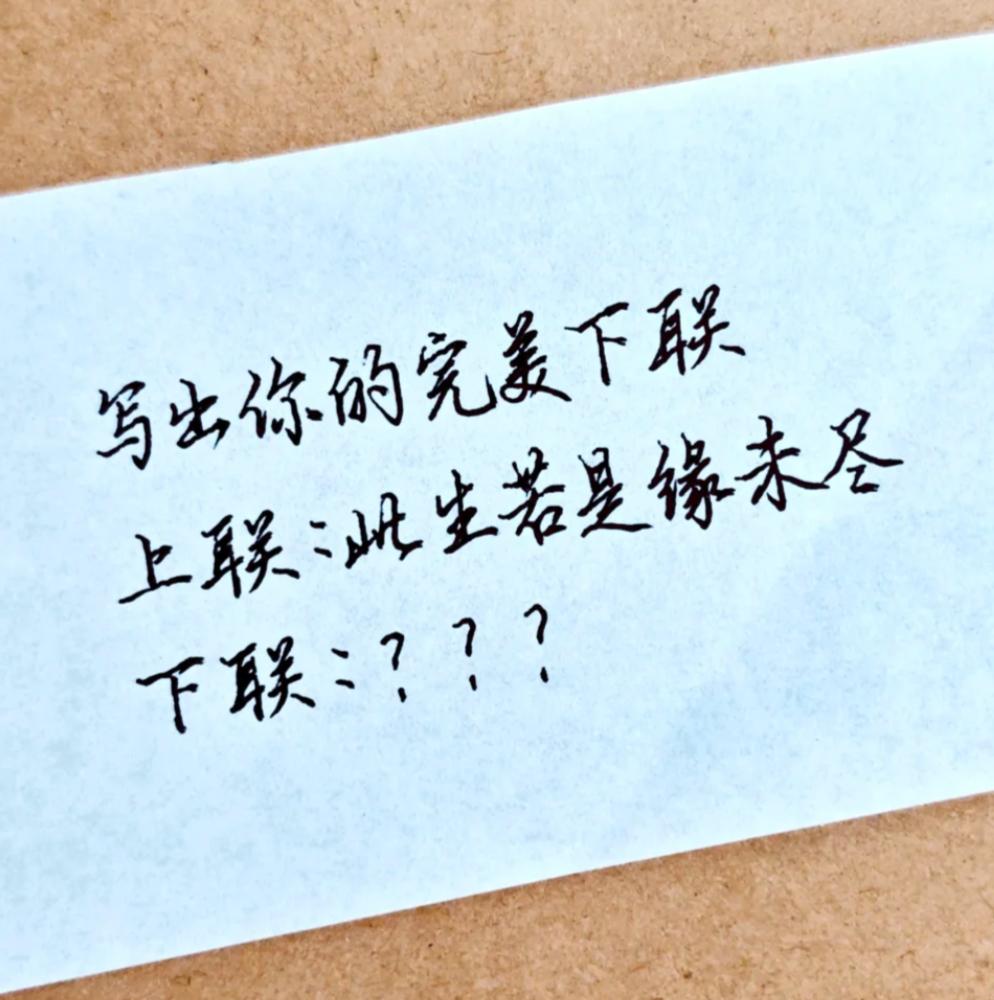 写出你的完美下联
上联:此生若是缘未尽
下联:???